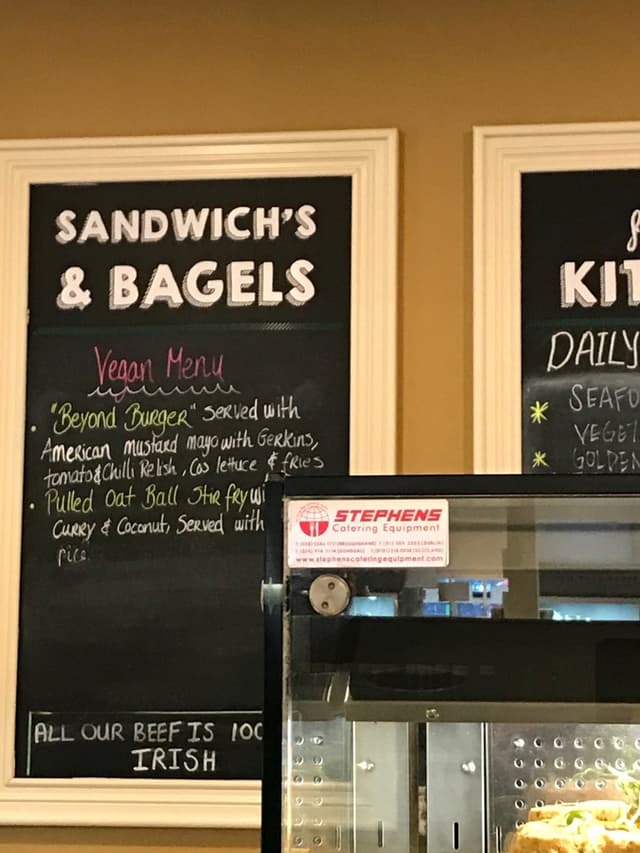 SANDWICH'S
& BAGELS
Vegan Menu
. "Beyond Burger" served with
American mustard mayo with Gerkins,
tomato & Chilli Relish, Cos lettuce & fries
. Pulled Oat Ball Stir fry wi
Curry & Coconut, Served with
rice.
ALL OUR BEEF IS 100
IRISH
KIT
DAILY
* SEAFO
VEGET
* GOLDEN
STEPHENS
Catering Equipment
www.stephenscateringequipment.com